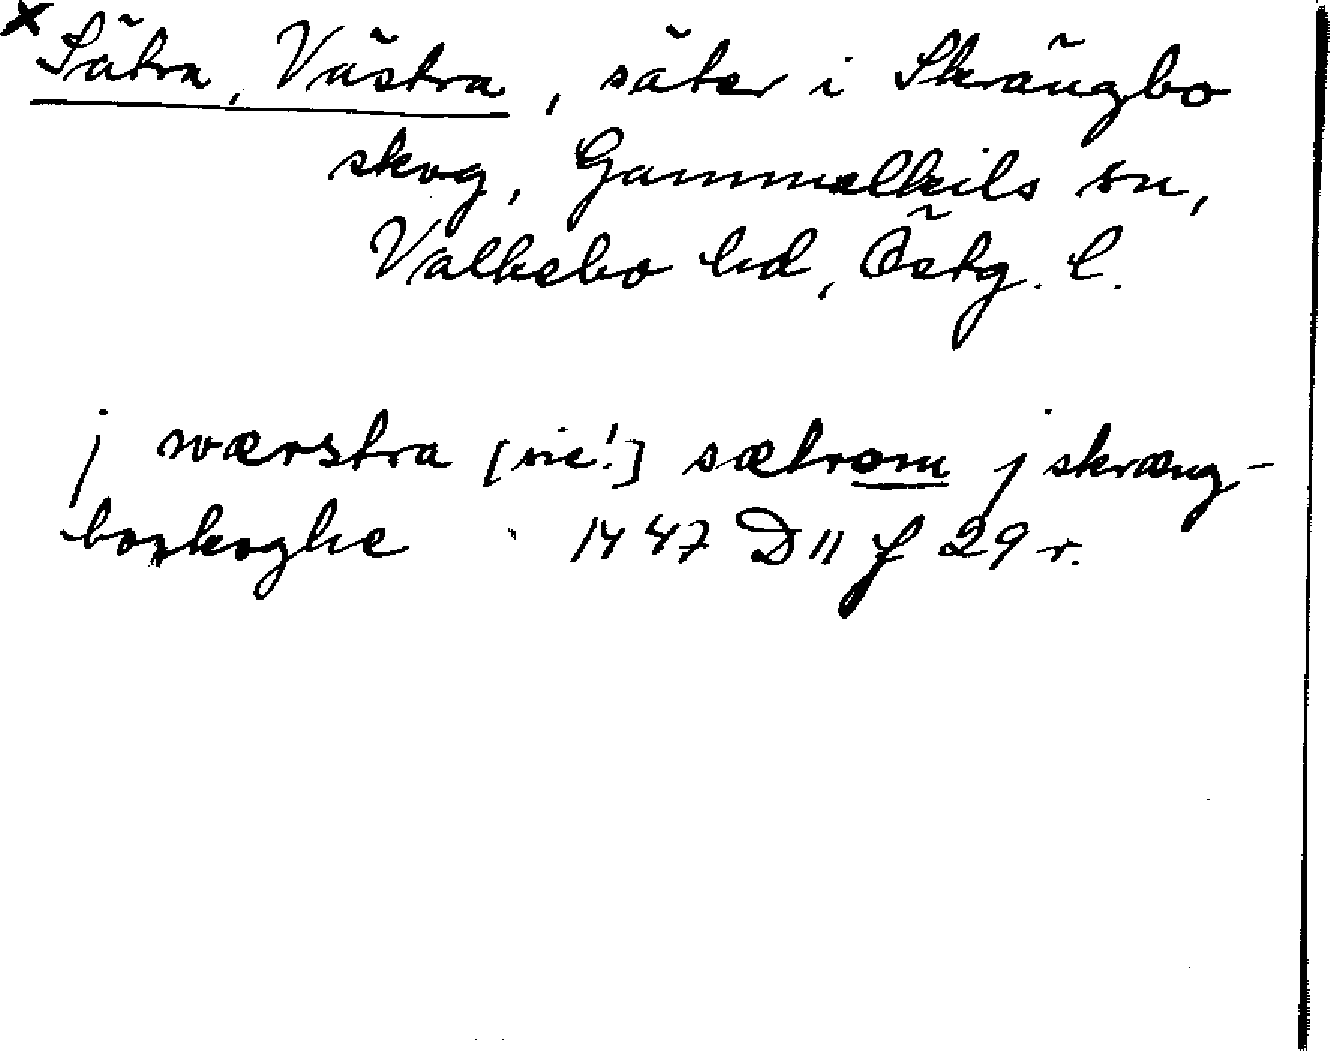 x Sätra, Västra, säter i Skrängbo
skog, Gammalkils sn,
Valkebo hd, Östg. l.
j wærstra [sic!] sætrom j skræng-
boskoghe 1447 D 11 f 29 r.